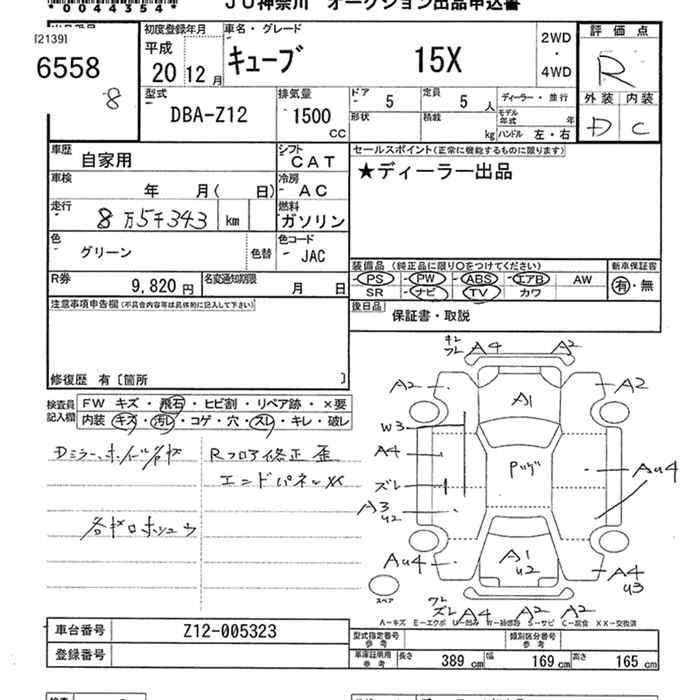 * 0 0 4 4 3 5 4 *
JU神奈川 オークション出品申込書
[2139]
6558
8
初度登録年月
平成
20 12 月
車名・グレード
キューブ 15X
2WD
・
4WD
評価点
R
外装 内装
D C
型式
DBA-Z12
排気量
1500
CC
ドア 5
形状
定員 5 人
積載 kg
ディーラー・並行
モデル年式 年
ハンドル 左・右
車歴
自家用
シフト
CAT
車検
年 月( 日)
冷房
AC
走行
8万5千343 km
燃料
ガソリン
色
グリーン
色替
色コード
JAC
R券
9,820 円
名変通知期限
月 日
セールスポイント(正常に機能するものに限ります)
★ディーラー出品
装備品 (純正品に限り○をつけてください)
PS PW ABS エアB AW
SR ナビ TV カワ
新車保証書
有・無
後日品
保証書・取説
注意事項申告欄(不具合内容等は具体的に記入して下さい)
修復歴 有〔箇所 〕
検査員記入欄
FW キズ・飛石・ヒビ割・リペア跡・×要
内装 キズ・汚レ・コゲ・穴・スレ・キレ・破レ
Rフロア修正 歪
エンドパネルXX
キレ
ワレ A4 A2
A2 A2
A1
W3
A4
ズレ
A3
U2
AU4
AU4
A1
U2
A4
U3
スペア
ワレ
ズレ A4 A2 A2
A-キズ E-エクボ U-凹み W-補修跡 S-サビ C-腐食 XX-交換済
車台番号 Z12-005323
登録番号
型式指定番号
参考
類別区分番号
参考
車庫証明用
参考
長さ 389 cm 幅 169 cm 高さ 165 cm